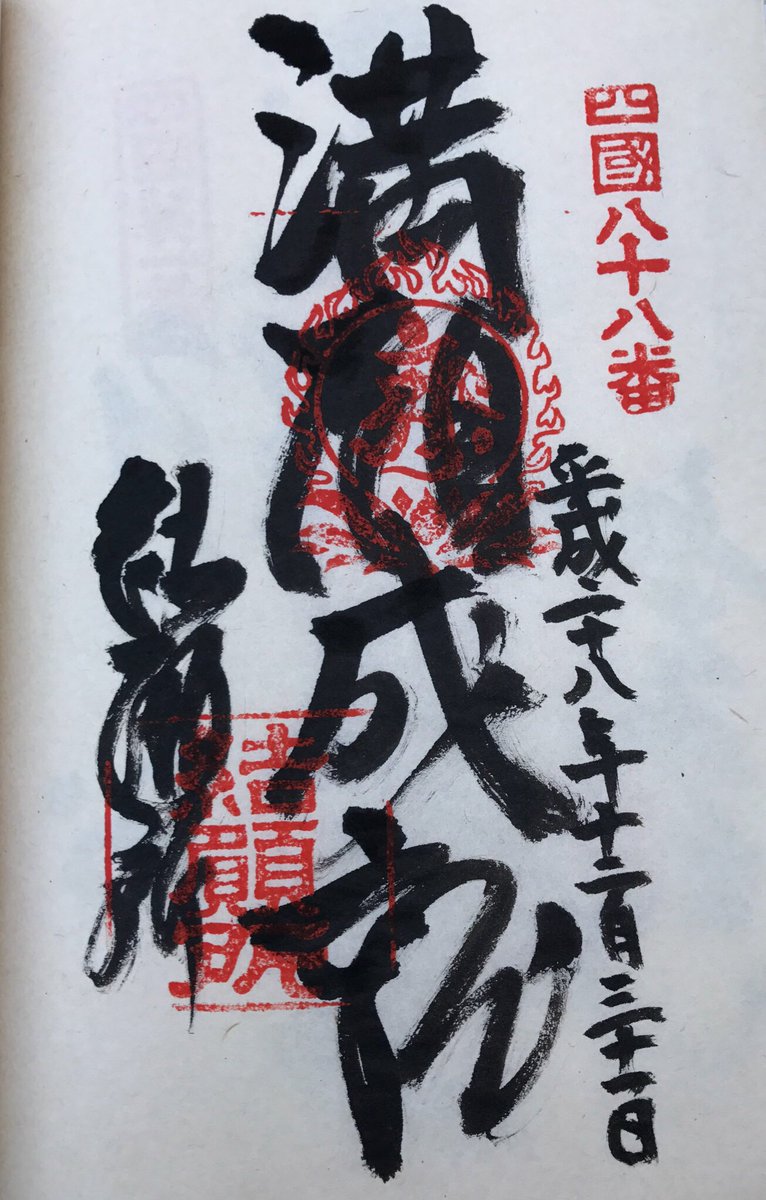 四國八十八番
平成二十八年十二月三十一日
満願成就
結願所
結願所